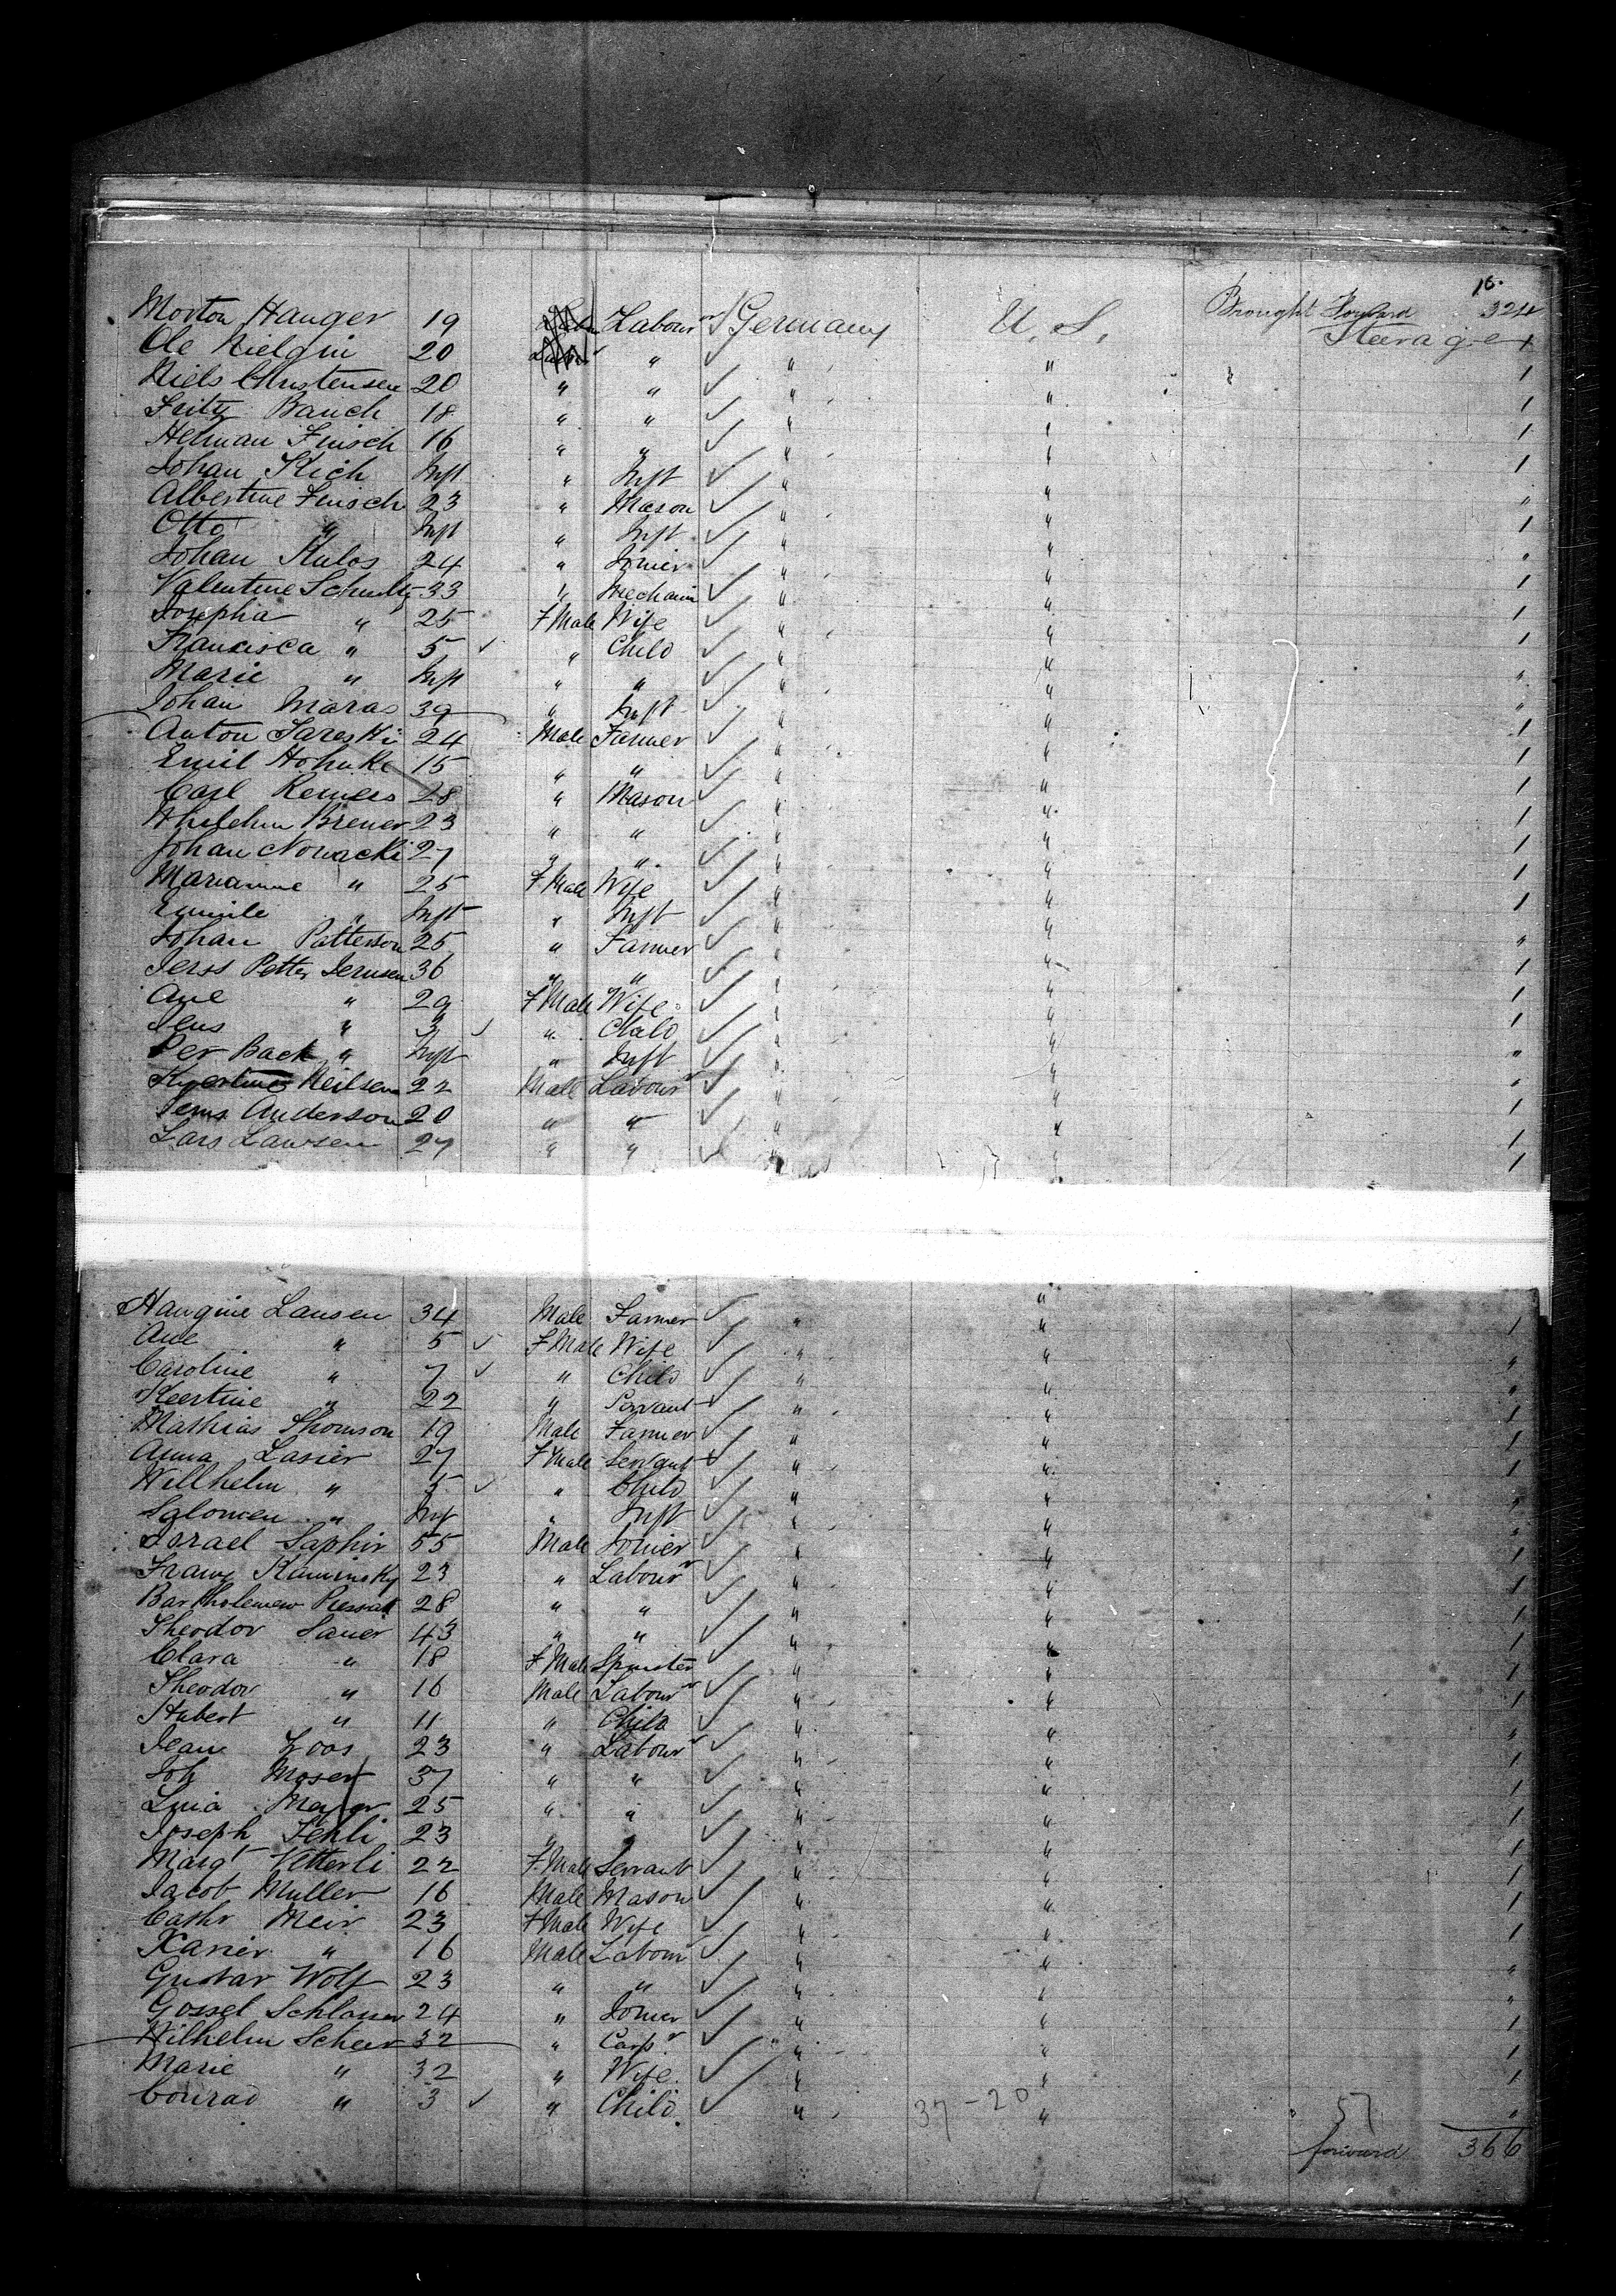 16.
Brought Forward 324
Morton Hauger 19 Labour Germany U. S. Steerage 1
Ole Nielqui 20 " " " 1
Niels Christensen 20 " " " " 1
Fritz Bauch 18 " " " " 1
Herman Finsch 16 " " " " 1
Johan Kich Inft " Inft " " "
Albertine Finsch 23 " Mason " " 1
Otto " Inft " Inft " " "
Johan Kulos 24 " Joiner " " 1
Valentine Schultz 33 " Mechanic " " 1
Josepha " 25 F Male Wife " " 1
Francisca " 5 " Child " " "
Marie " Inft " " " " "
Johan Maras 39 " Inft " "
Anton Jareski 24 Male Farmer " " 1
Emil Hohnke 15 " " " " 1
Carl Remers 28 " Mason " " 1
Whilelm Brener 23 " " " " 1
Johan Nowacki 27 " " " " 1
Marianne " 25 F Male Wife " " 1
Emmile " Inft " Inft " " "
Johan Patterson 25 " Farmer " " 1
Jerss Petter Jernsen 36 " " " " 1
Ane " 29 F Male Wife " " 1
Jens " 3 " Child " " "
Per Back " Inft " Inft " " "
Neilsen 22 Male Labour " " 1
Jens Anderson 20 " " " " 1
Lars Lawsen 27 " " " " 1
Haugine Lausen 34 Male Farmer " " 1
Ane " 5 F Male Wife " " "
Caroline " 7 " Child " " "
Keertine " 22 " Servant " " 1
Mathias Thomson 19 Male Farmer " " 1
Anna Lasier 27 F Male Servant " " 1
Willhelm " 5 " Child " " "
Salomen " Inf " Inft " " "
Israel Saphir 55 Male Joiner " " 1
Franz Kaminsky 23 " Labour " " 1
Bartholemew 28 " " " " 1
Theodor Sauer 43 " " " " 1
Clara " 18 F Male Spinster " " 1
Theodor " 16 Male Labour " " 1
Hubert " 11 " Child " " "
Jean Loos 23 " Labour " " 1
Joh Moser 37 " " " " 1
Luia Mayer 25 " " " " 1
Joseph Jehli 23 " " " " 1
Margt Vetterli 22 F. Male Servant " " 1
Jacob Muller 16 Male Mason " " 1
Cathr Meir 23 F Male Wife " " 1
Xavier " 16 Male Labour " " "
Gustav Wolf 23 " " " " "
Gossel Schlosser 24 " Joiner " " 1
Wilhelm Scheer 32 " Carpr " " 1
Marie " 32 " Wife " " 1
Conrad " 3 " Child. " " "
37-20 57
forward 366